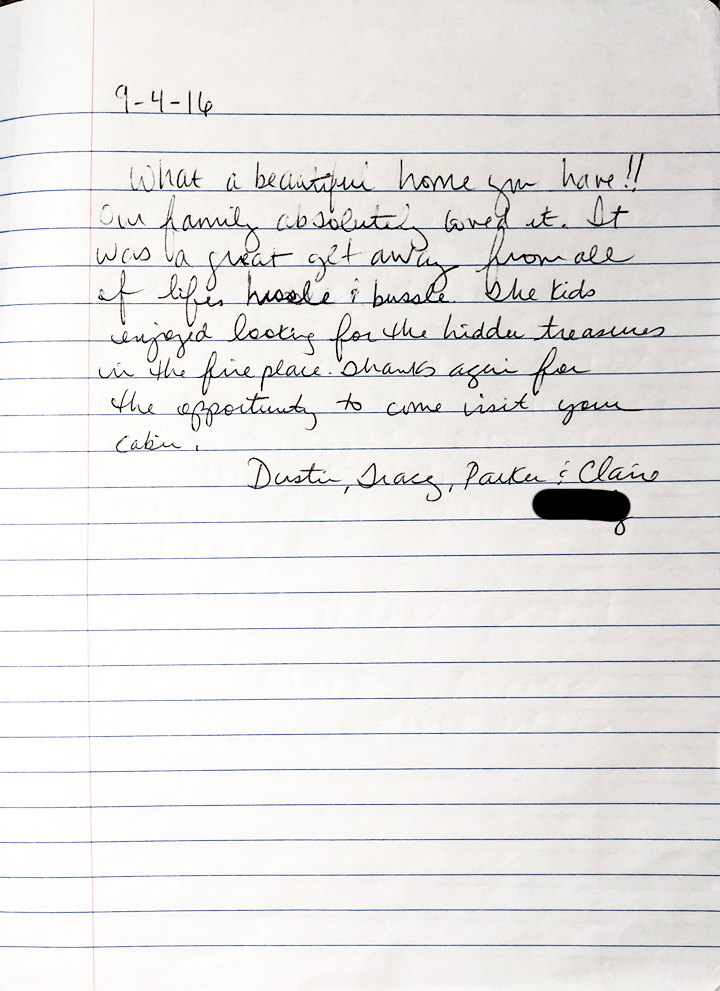 9-4-16
What a beautiful home you have!!
Our family absolutely loved it. It
was a great get away from all
of lifes hussle & bussle. The kids
enjoyed looking for the hidden treasures
in the fire place. Thanks again for
the opportunity to come visit your
cabin.
Dustin, Tracy, Parker & Claire